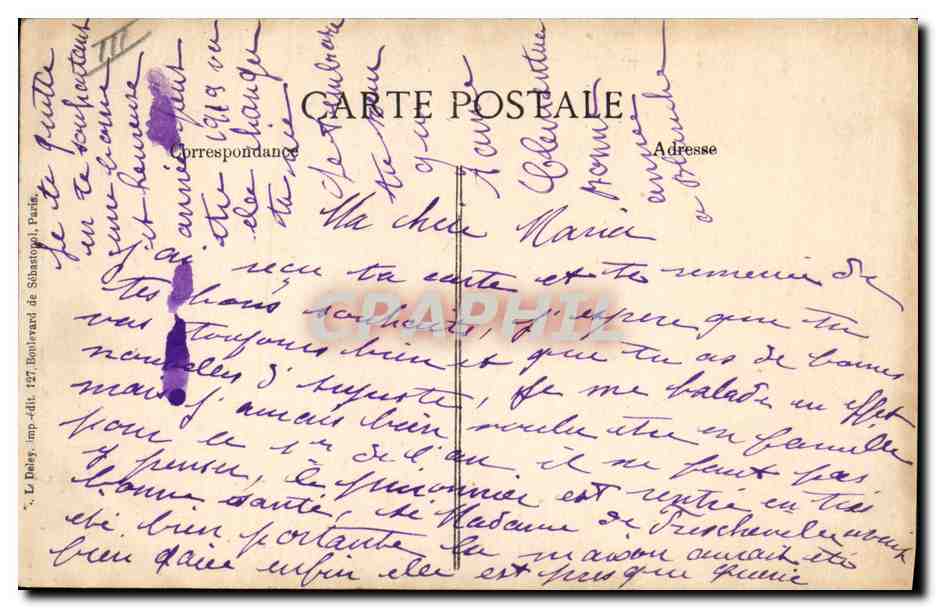 III
CARTE POSTALE
Correspondance
Adresse
L. Deley, imp.-édit. 127, Boulevard de Sébastopol, Paris.
Ma chère Marie
j'ai reçu ta carte et te remercie de
tes bons souhaits, j'espère que tu
vas toujours bien et que tu as de bonnes
nouvelles d'Auguste, Je me balade en effet
mais j'aurais bien voulu être en famille
pour le 1er de l'an il ne faut pas
y penser, le prisonnier est rentré en très
bonne santé, si Madame de avait
été bien portante la maison aurait été
bien gaie enfin elle est presque guérie
Je te quitte
en te souhaitant
une bonne
et heureuse
année
1919 va
changer
ta vie
Je t'embrasse
ta
qui
t'aime
Clémentine
bonne
année
CPAPHIL